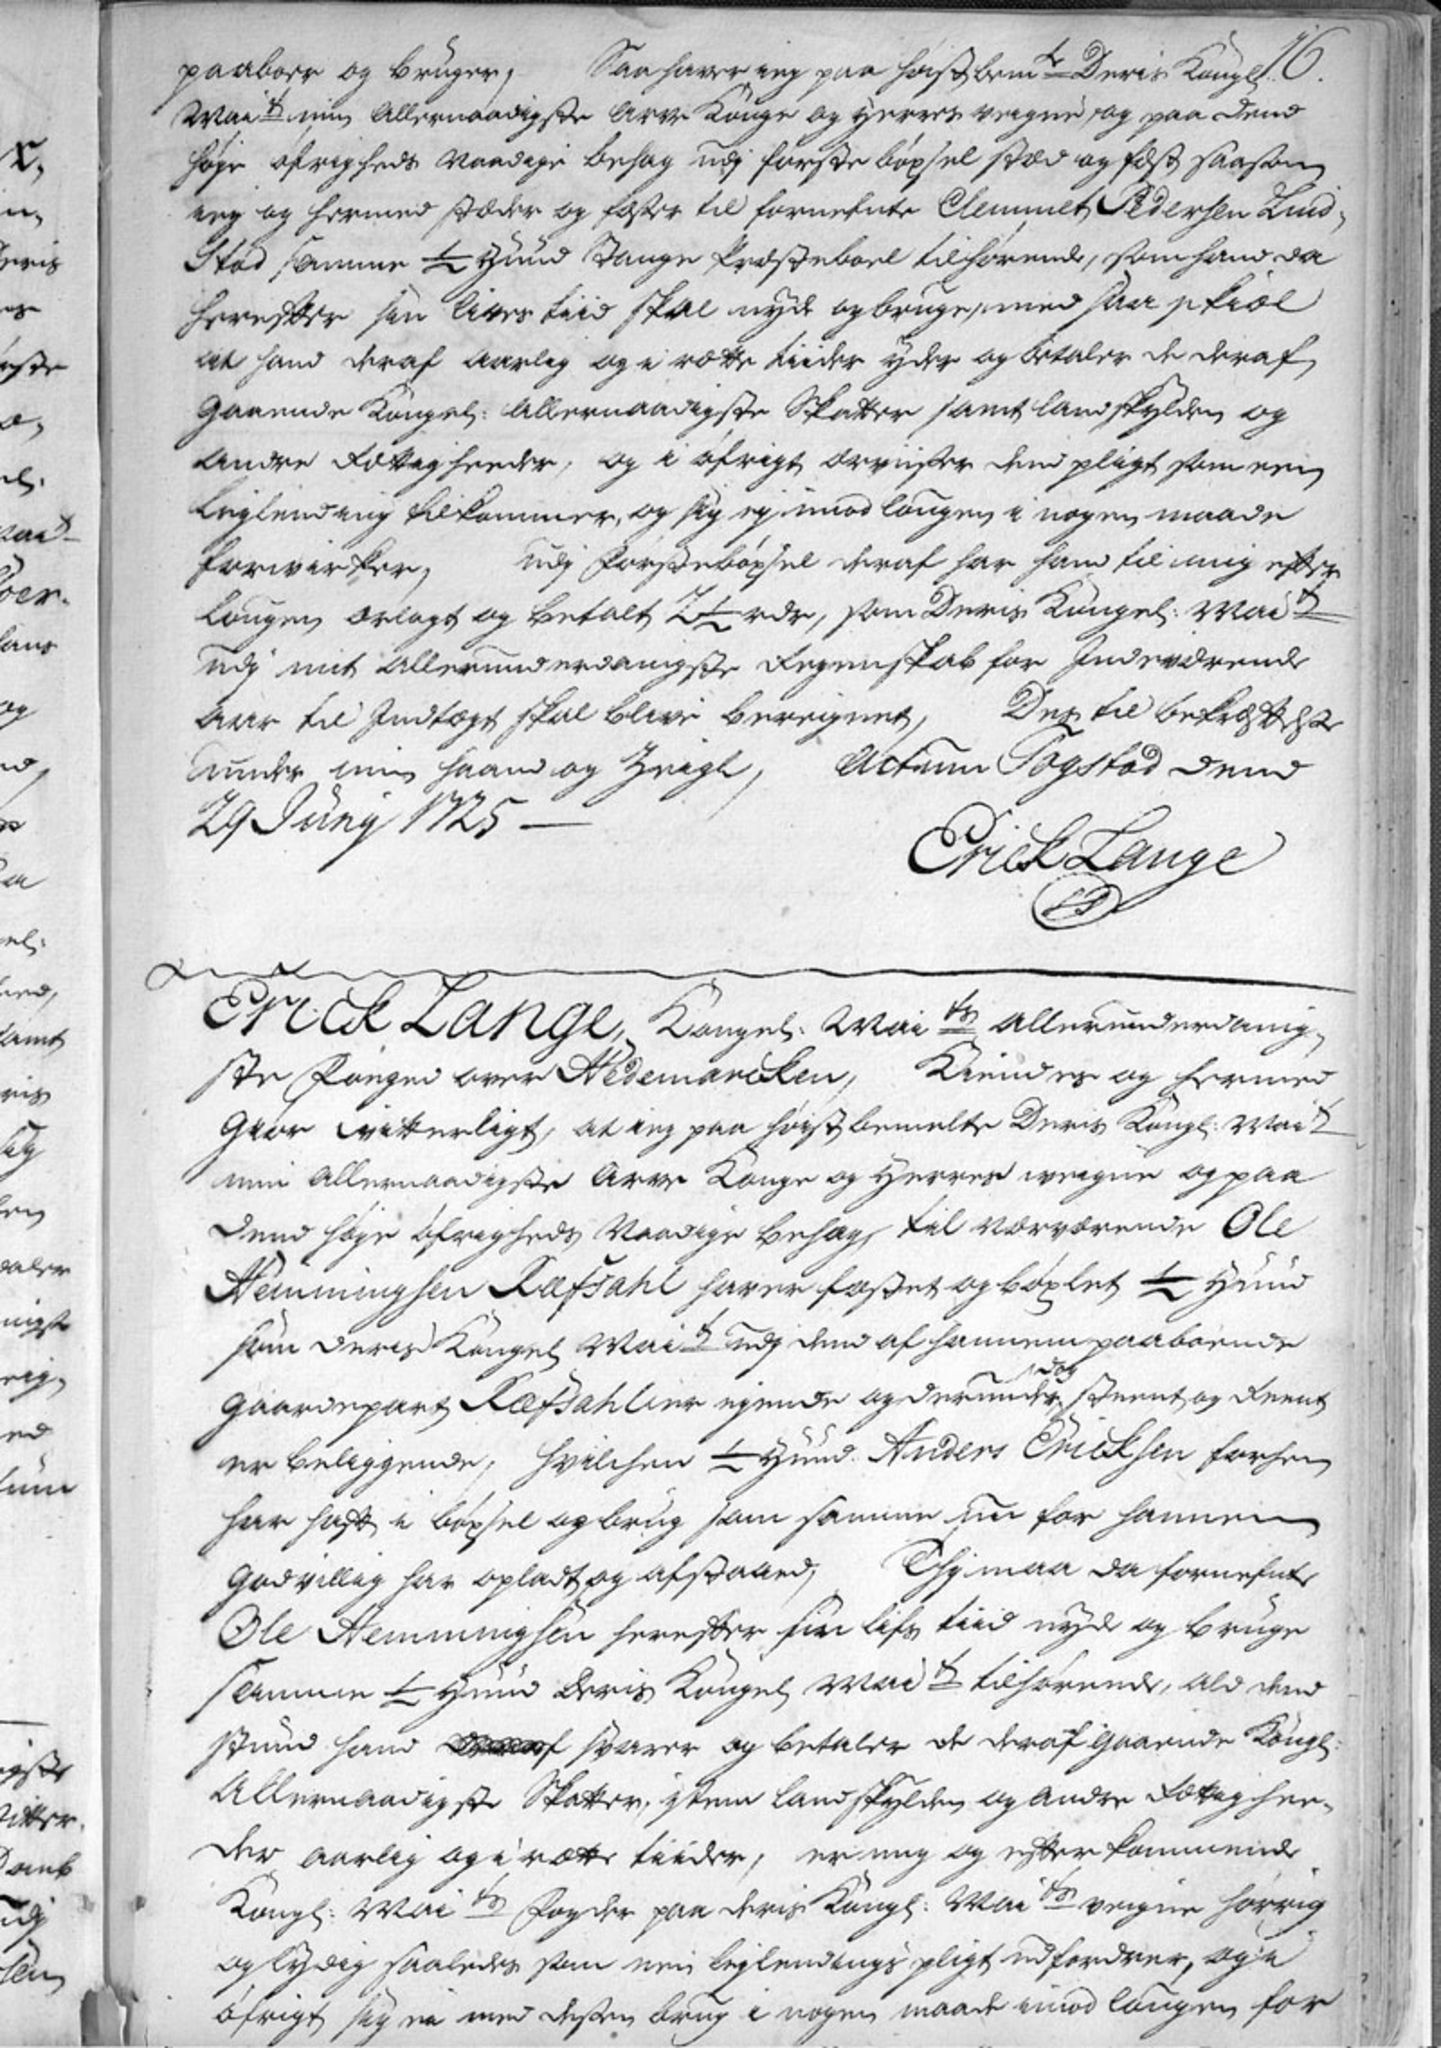 16.
paaboer og bruger, Saa haver ieg paa høist bemte Deris Kongl:
Maits min Allernaadigste Arve Konge og Herres veigne, og paa dend
høje øfrigheds Naadige behag udj første böxsel stæd og fæst saasom
ieg og hermed stæder og fæster til fornefnte Clemmet Pedersen Lind-
stad samme ½ Hund Stange Præsteboel tilhørende, som hand da
herefter sin lives tiid skal nyde og bruge, med saa skiæl
at hand deraf aarlig og i rætte tiider yder og betaler de deraf
gaaende Kongel: Allernaadigste Skatter samt landskylden og
andre Rættigheeder, og i øfrigt ærviiser dend pligt som een
leylending tilkommer, og sig ej imod lougen i nogen maade
forvirker, udj første böxsel deraf har hand til mig efter
lougen erlagt og betalt 2½ rdr, som Deris Kongel: Maits
udj mit allerunderdanigste Regenskab for Indeværende
aar til Indtægt skal blive bereignet, Des til bekræftelse
under min haand og Zeigl, Actum Sogstad dend
29 Junj 1725 —
Erick Lange
LS
Erick Lange, Kongel: Maits Allerunderdanig-
ste Fouged over Hedemarcken, Kiendes og hermed
giør witterligt, at ieg paa høist bemelte Deris Kongl: Maits
min Allernaadigste Arve Konge og Herres weigne og paa
dend høje øfrigheds Naadige behag, til nærværende Ole
Hemmingsen Ræfsahl haver fæstet og böxlet ½ Hund
som deris Kongel Maits udj dend af hannem paaboende
gaardepart Ræfsahl er ejende og derunder dog steent og Reent
er beliggende, hvilchen ½ Hund Anders Ericksen forhen
har haft i böxsel og brug som samme nu for hannem
godvillig har opladt og afstaaed, Thj maa da fornefnte
Ole Hemmingsen herefter sin lifs tiid nyde og bruge
samme ½ Hund Deris Kongel Maits tilhørende, ald dend
stund hand svarer og betaler de deraf gaaende Kongl:
Allernaadigste Skatter, item landskylden og andre Rættighee-
der aarlig og i rætte tiider, er mig og efterkommende
Kongl: Maits Fogder paa deris Kongl: Maits veigne hørrig
og lydig saaledes som een leylendings pligt udfordrer, og i
øfrigt sig ei med dessen brug i nogen maade imod lougen for